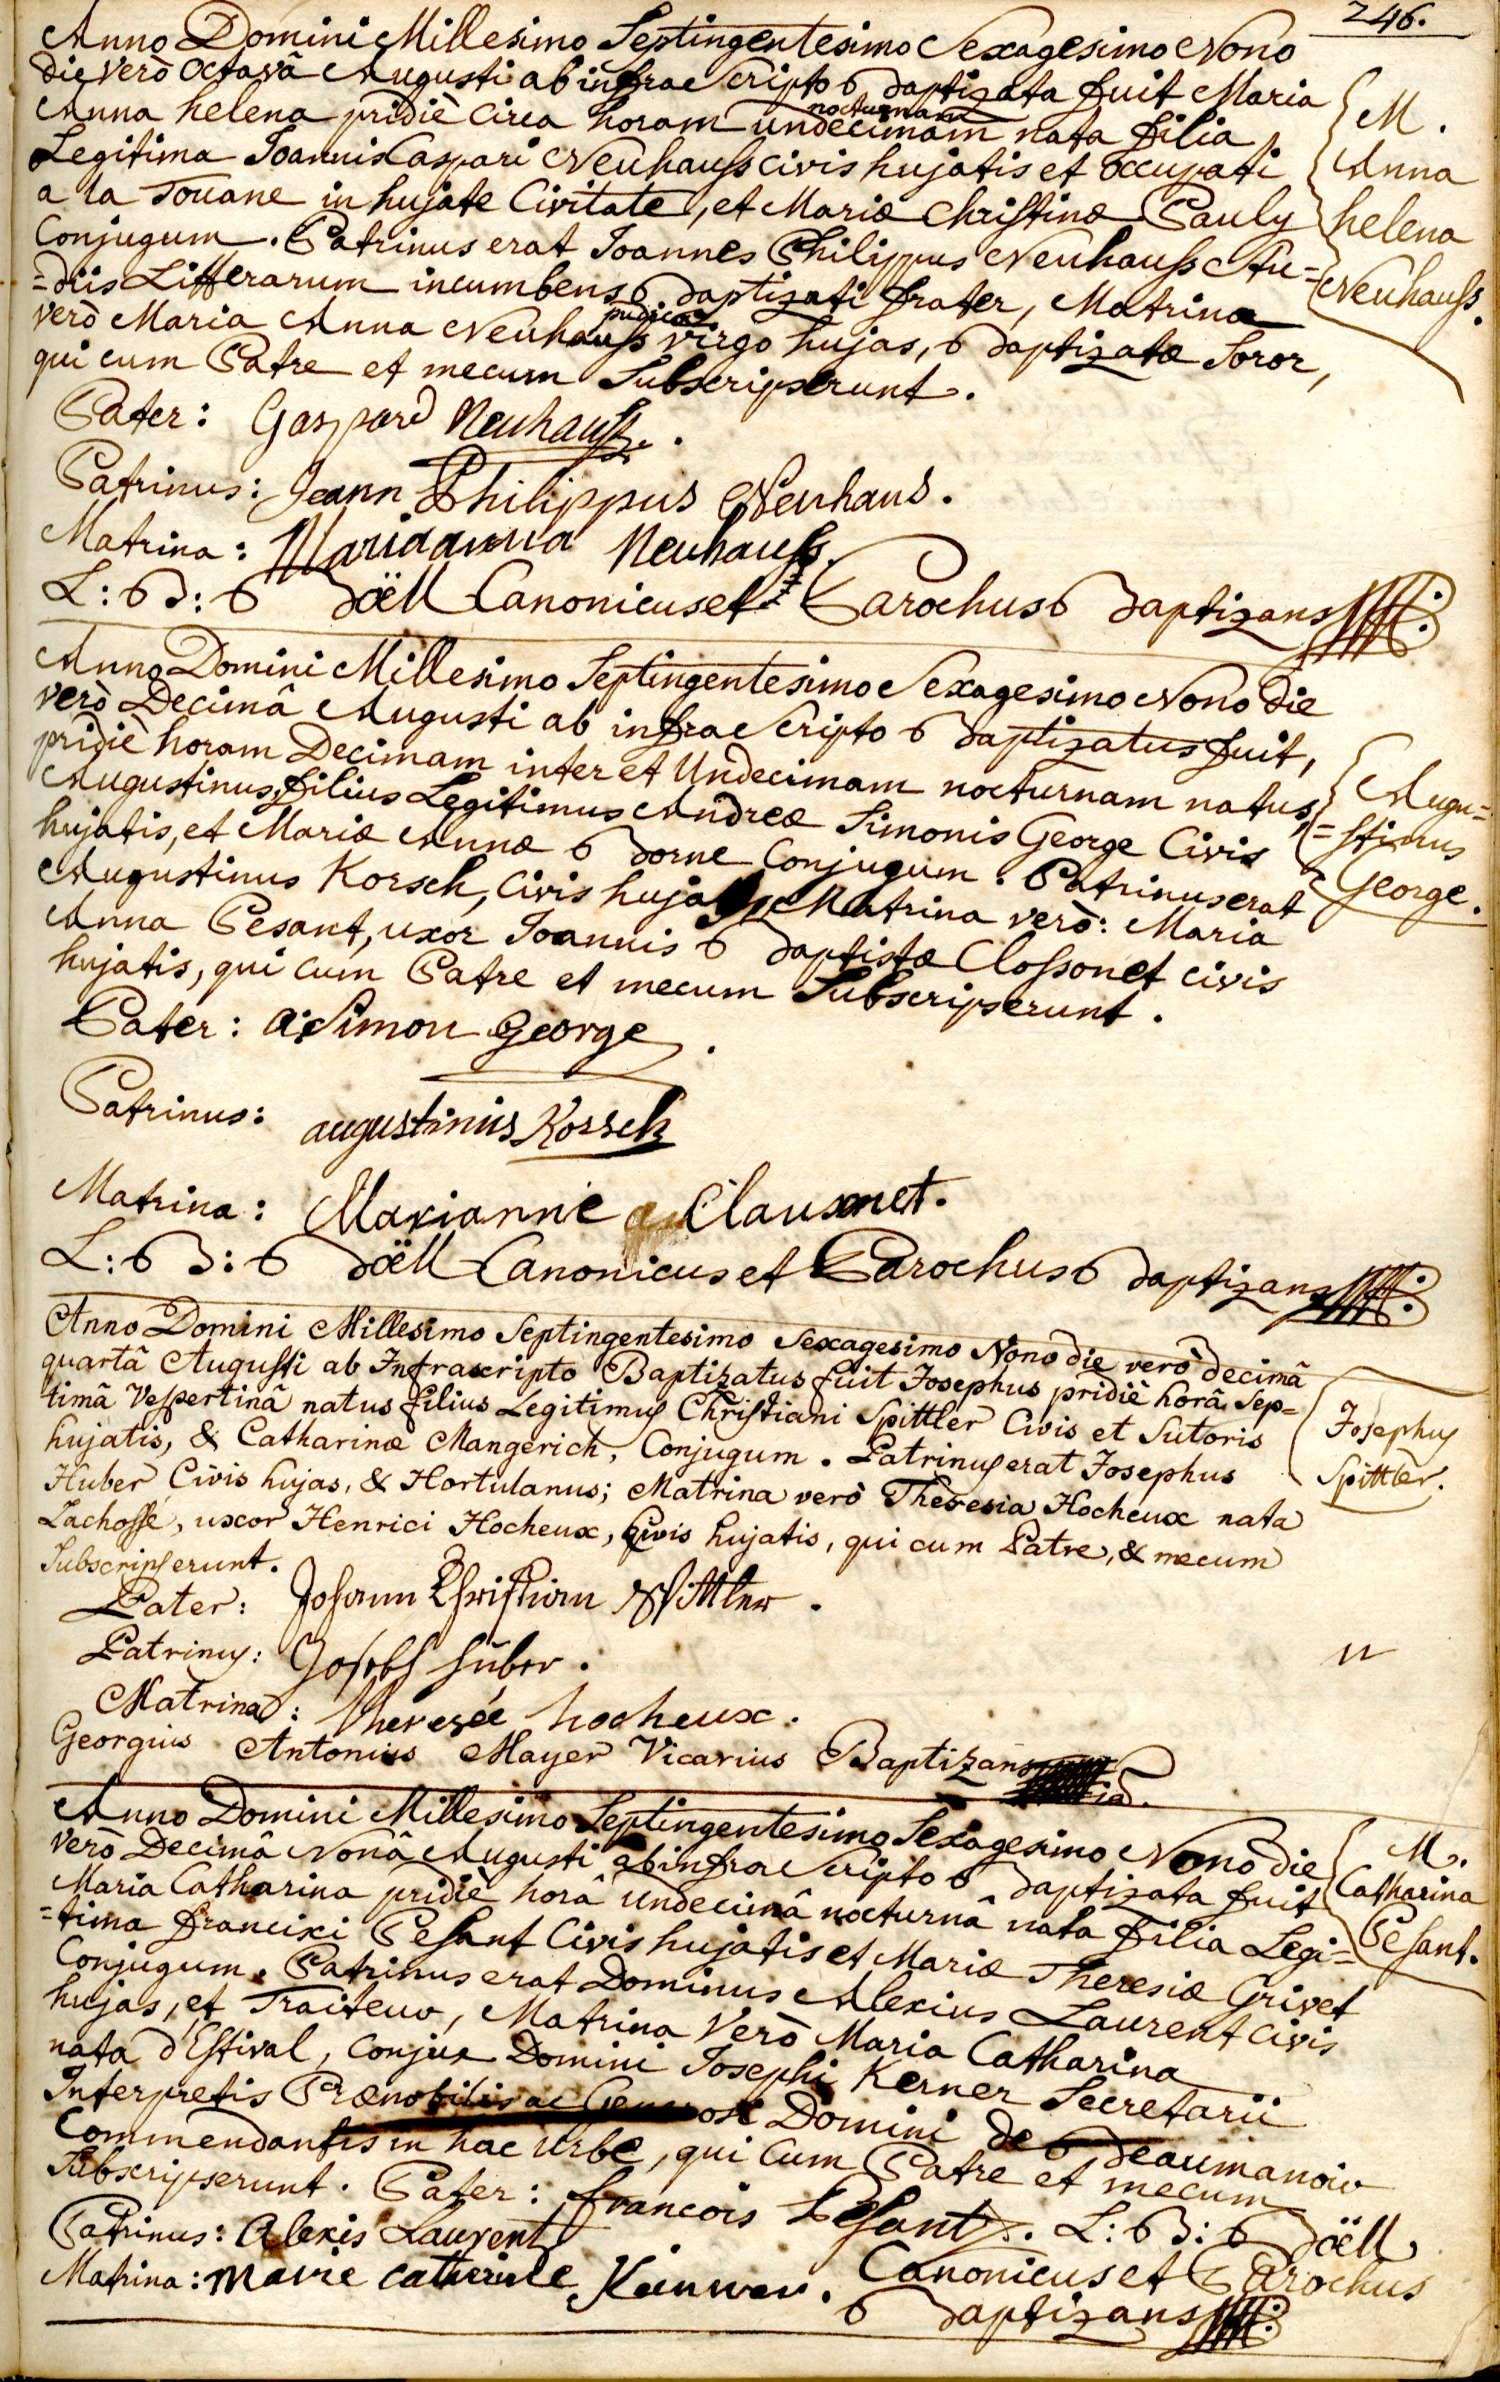 246.
Anno Domini Millesimo Septingentesimo Sexagesimo Nono
die verò octavâ Augusti ab infra Scripto Baptizata fuit Maria
Anna helena pridiè circa horam undecimam nocturnam nata filia
Legitima Joannis Caspari Neuhauss civis hujatis et occupati
a la Douane in hujate Civitate, et Mariæ Christinæ Pauly
Conjugum. Patrinus erat Joannes Philippus Neuhauss Stu=
=diis Litterarum incumbens Baptizati frater, Matrina
verò Maria Anna Neuhauss pudica virgo hujas, Baptizatæ Soror,
qui cum Patre et mecum Subscripserunt.
M.
Anna
helena
Neuhauss.
Pater: Gaspard Neuhauss.
Patrinus: Jeann Philippus Neuhaus.
Matrina: Marianna Neuhauss.
L: B: Boëll Canonicus et Parochus Baptizans
Anno Domini Millesimo Septingentesimo Sexagesimo Nono die
verò Decimâ Augusti ab infra Scripto Baptizatus fuit,
pridiè horam Decimam inter et Undecimam nocturnam natus,
Augustinus, filius Legitimus Andreæ Simonis George Civis
hujatis, et Mariæ Annæ Borne Conjugum. Patrinus erat
Augustinus Korsch, Civis hujas, Matrina verò: Maria
Anna Pesant, uxor Joannis Baptistæ Clossonet civis
hujatis, qui cum Patre et mecum Subscripserunt.
Augu=
=stinus
George.
Pater: A: Simon George.
Patrinus: augustinus Korsch
Matrina: Marianne Clausonet.
L: B: Boëll Canonicus et Parochus Baptizans
Anno Domini Millesimo Septingentesimo Sexagesimo Nono die verò decimâ
quartâ Augusti ab Infrascripto Baptizatus fuit Josephus pridiè horâ Sep=
timâ Vespertinâ natus filius Legitimus Christiani Spittler Civis et Sutoris
hujatis, & Catharinæ Mangerich, Conjugum. Patrinus erat Josephus
Huber Civis hujas, & Hortulanus; Matrina verò Theresia Hocheux nata
Lachossé, uxor Henrici Hocheux, Civis hujatis, qui cum Patre, & mecum
Subscripserunt.
Josephus
Spittler.
Pater: Johann Christian Spittler.
Patrinus: Joseph Huber.
Matrina: theresée hocheux.
Georgius Antonius Mayer Vicarius Baptizans
Anno Domini Millesimo Septingentesimo Sexagesimo Nono die
verò Decimâ Nonâ Augusti ab infra Scripto Baptizata fuit
Maria Catharina pridiè horâ undecimâ nocturnâ nata filia Legi=
=tima francixi Pesant Civis hujatis et Mariæ Theresiæ Grivet
Conjugum. Patrinus erat Dominus Alexius Laurent civis
hujas, et Traiteur, Matrina Verò Maria Catharina
nata d'Estival, conjux Domini Josephi Kerner Secretarii
Interpretis Prænobilis ac Generosi Domini de Beaumanoir
Commendantis in hac Urbe, qui Cum Patre et mecum
Subscripserunt. Pater: francois Pesant. L: B: Boëll
M.
Catharina
Pesant.
Patrinus: Alexis Laurent Canonicus et Parochus
Matrina: Marie Catherine Baptizans